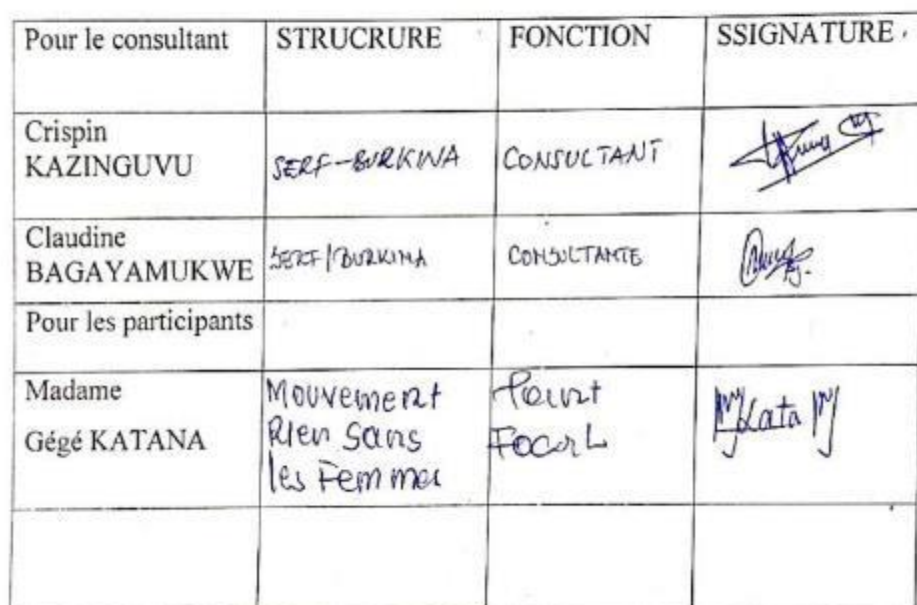 Pour le consultant STRUCRURE FONCTION SSIGNATURE
Crispin
KAZINGUVU SERF-BURKINA CONSULTANT
Claudine
BAGAYAMUKWE SERF/BURKINA CONSULTANTE
Pour les participants
Madame Mouvement Point
Gégé KATANA Rien Sans Focal
les Femmes